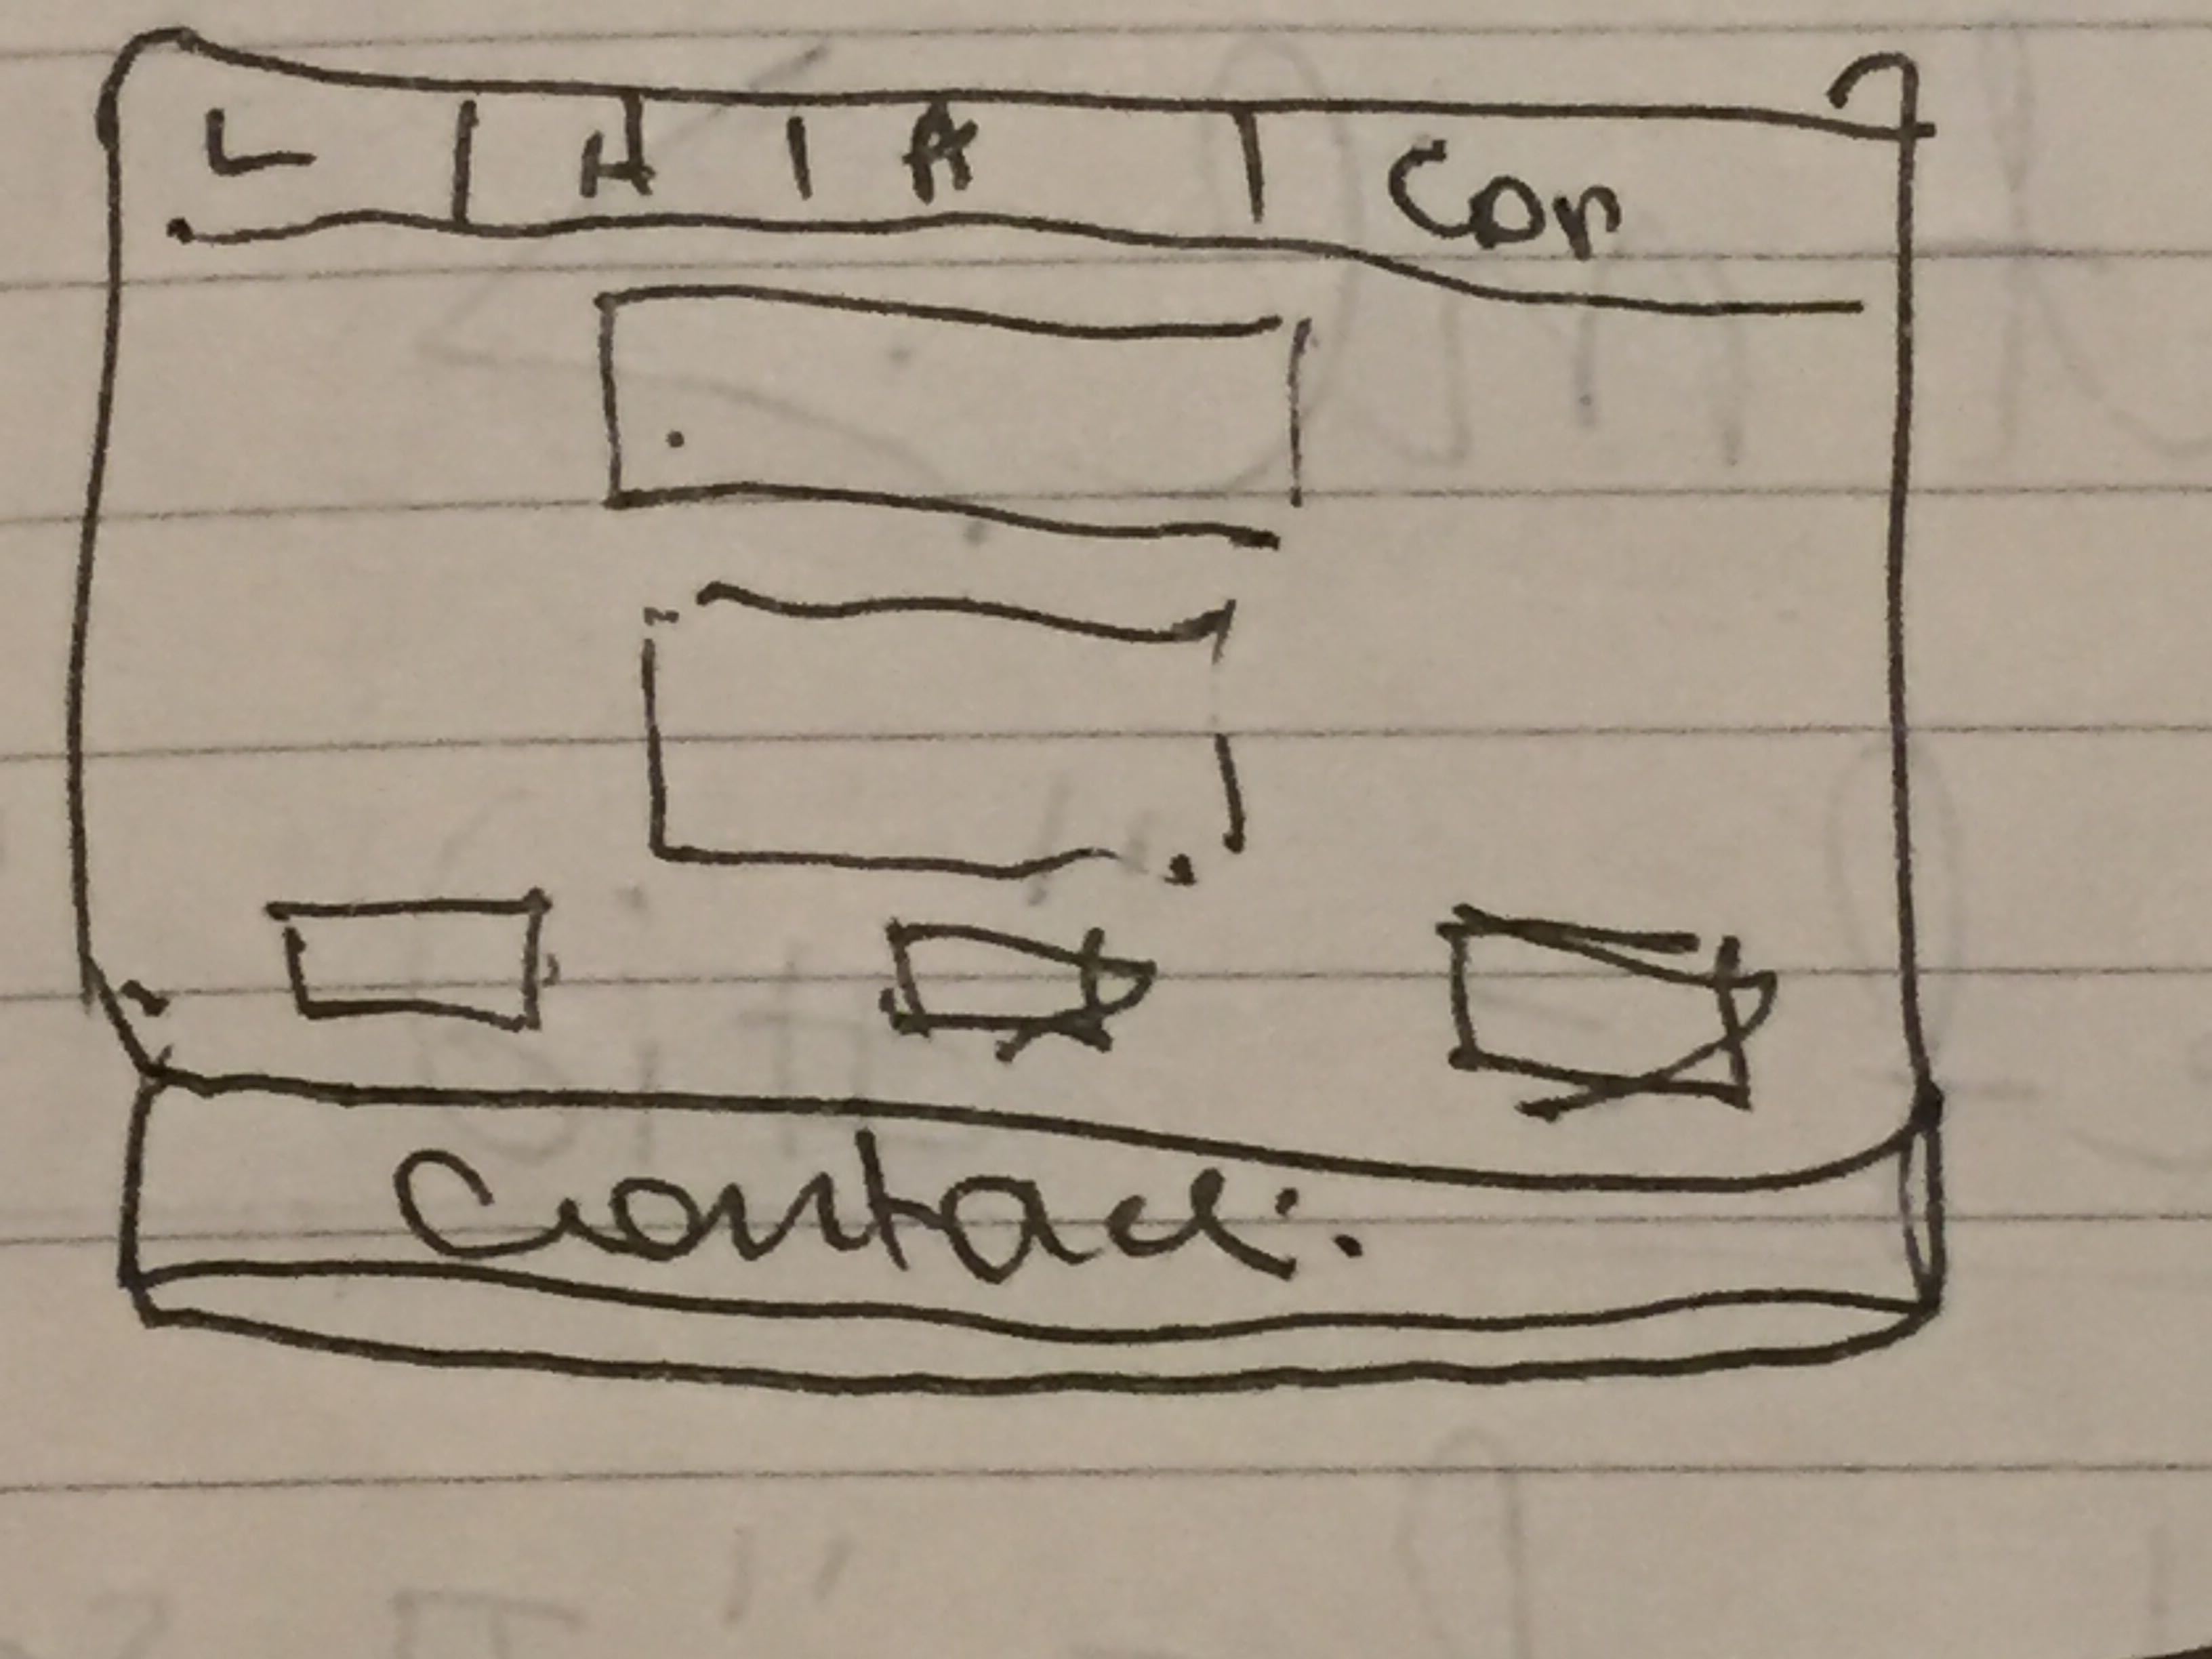 L | H | A | Con
Contact: